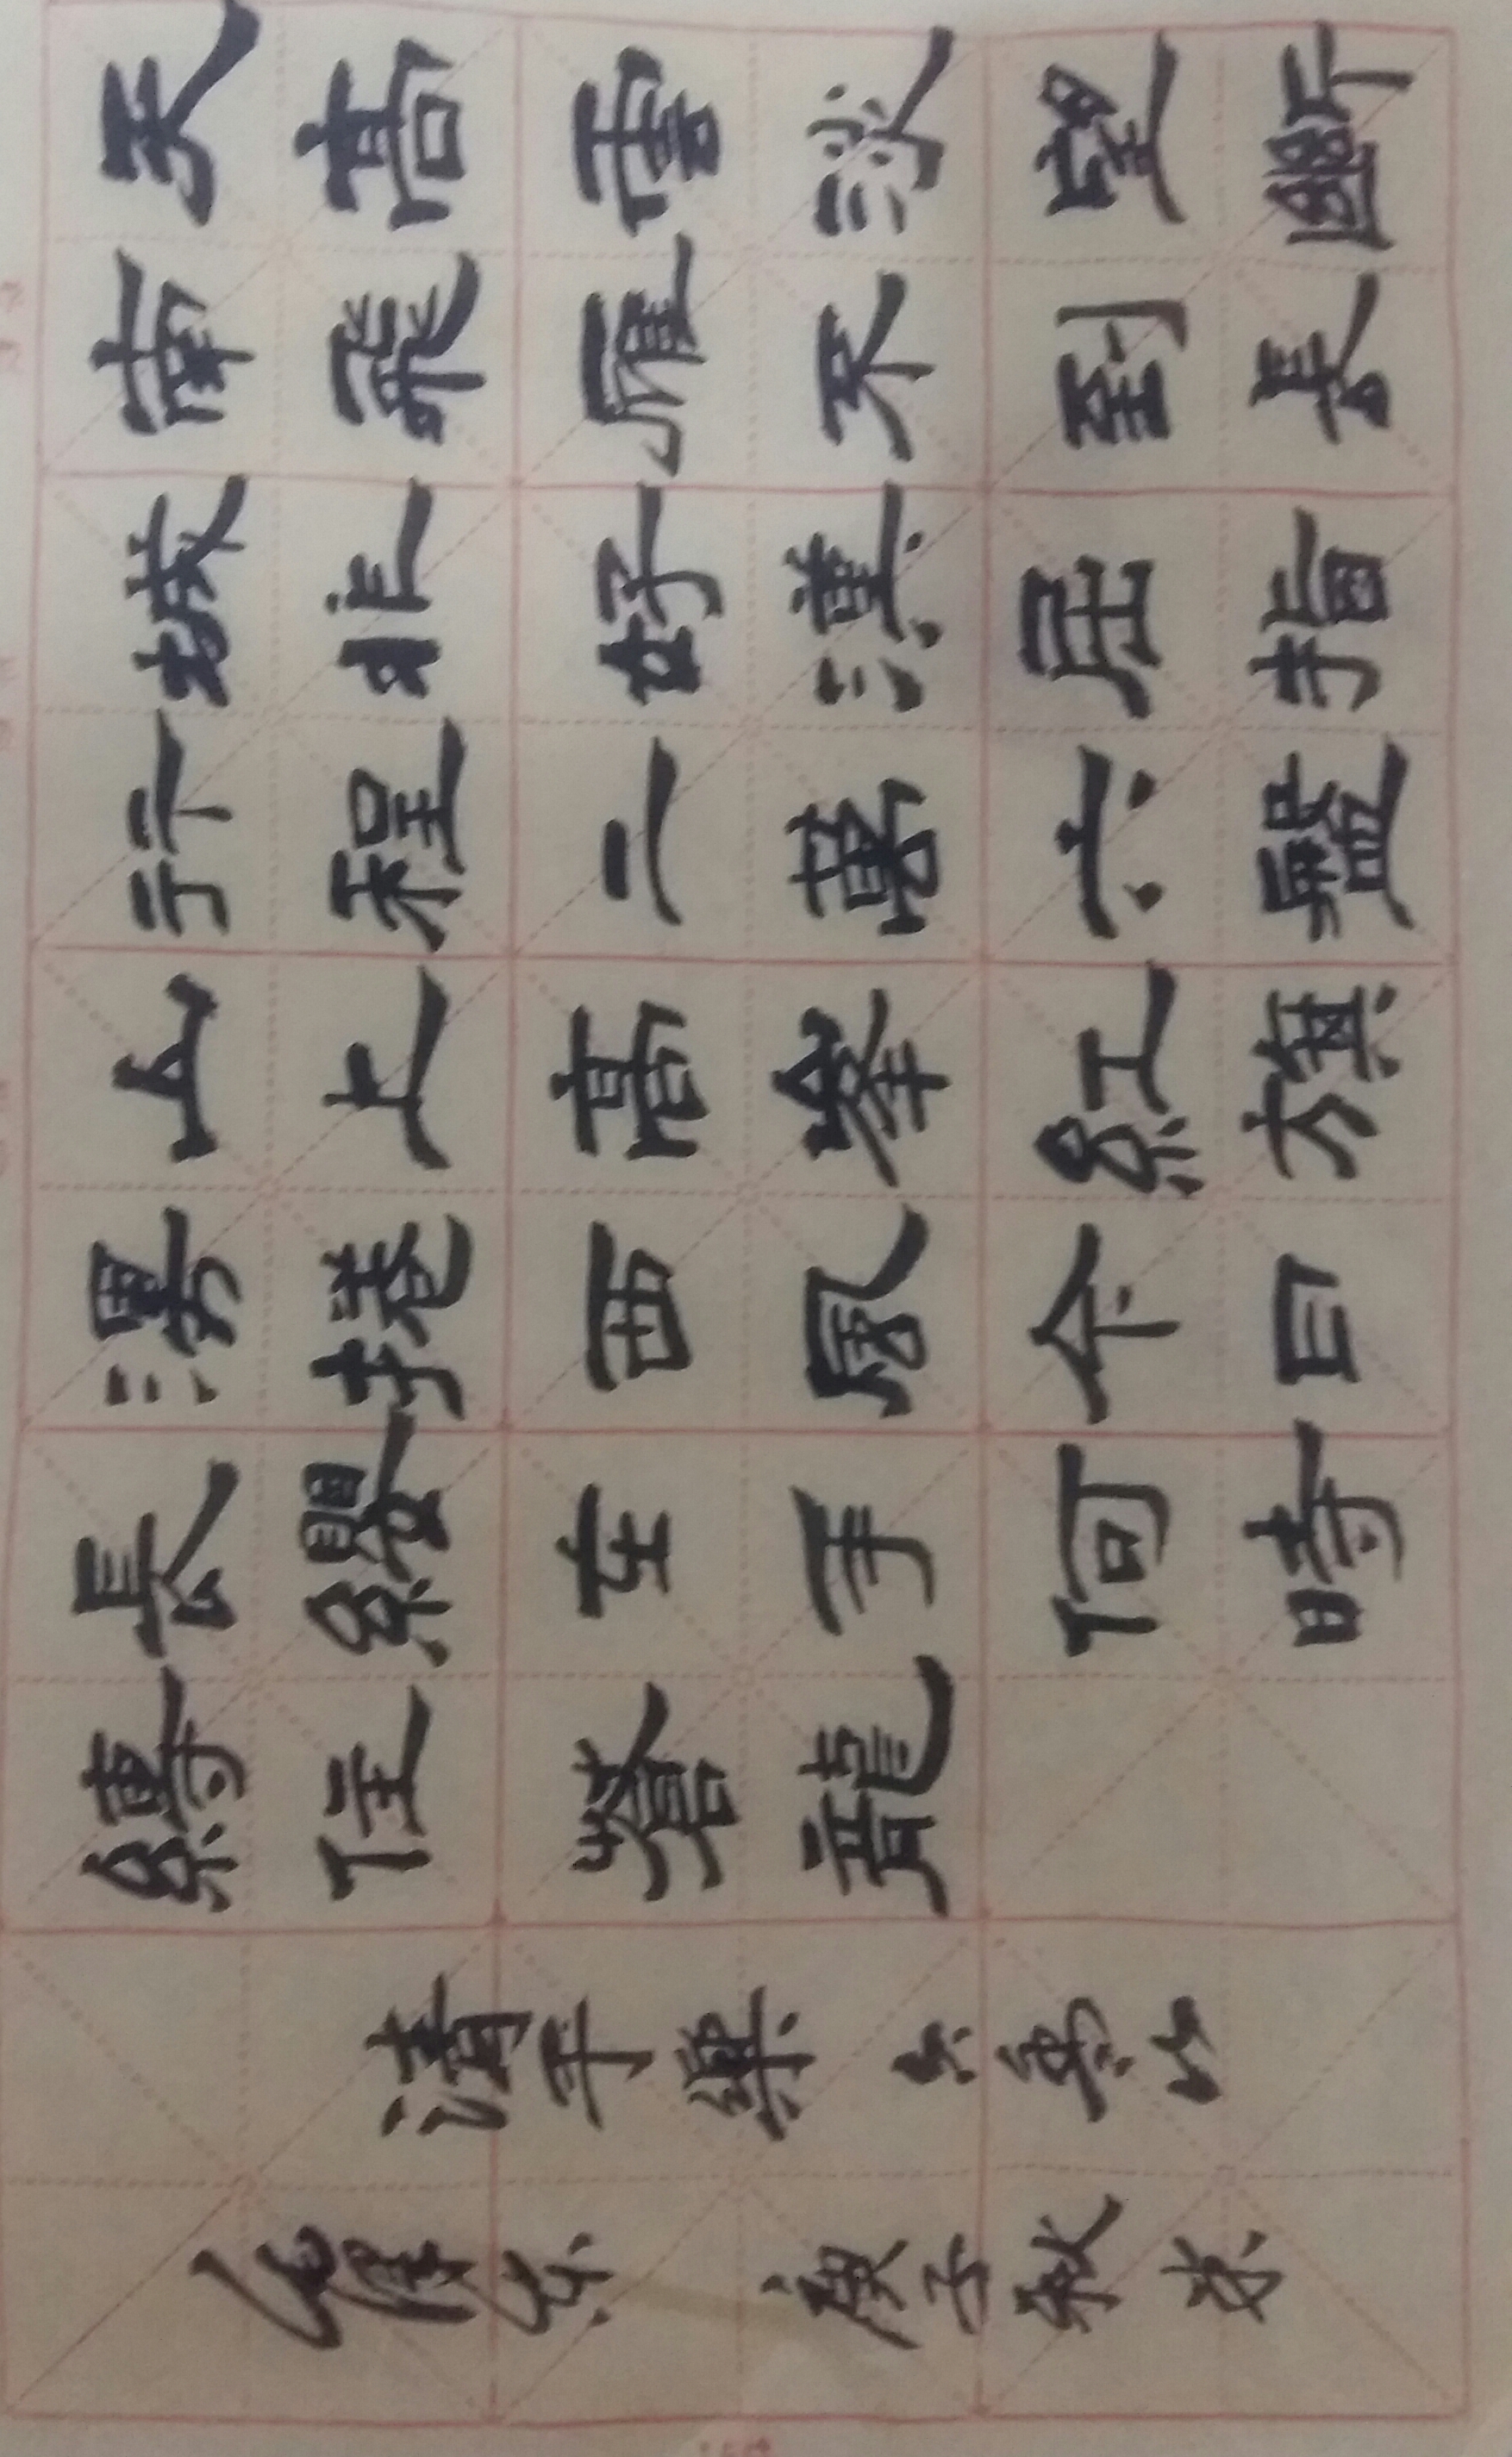 天高雲淡望斷
南飛雁不到長
城非好漢屈指
行程二萬六盤
山上高峰紅旗
漫捲西風今日
長纓在手何時
縛住蒼龍
清平樂 六盘山
毛澤东 庚子秋